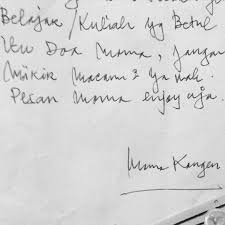 Belajar / Kuliah yg Betul
Doa Mama, Jangan
Mikir Macam2 Ya nak.
Pesan Mama enjoy aja.
Mama Kangen